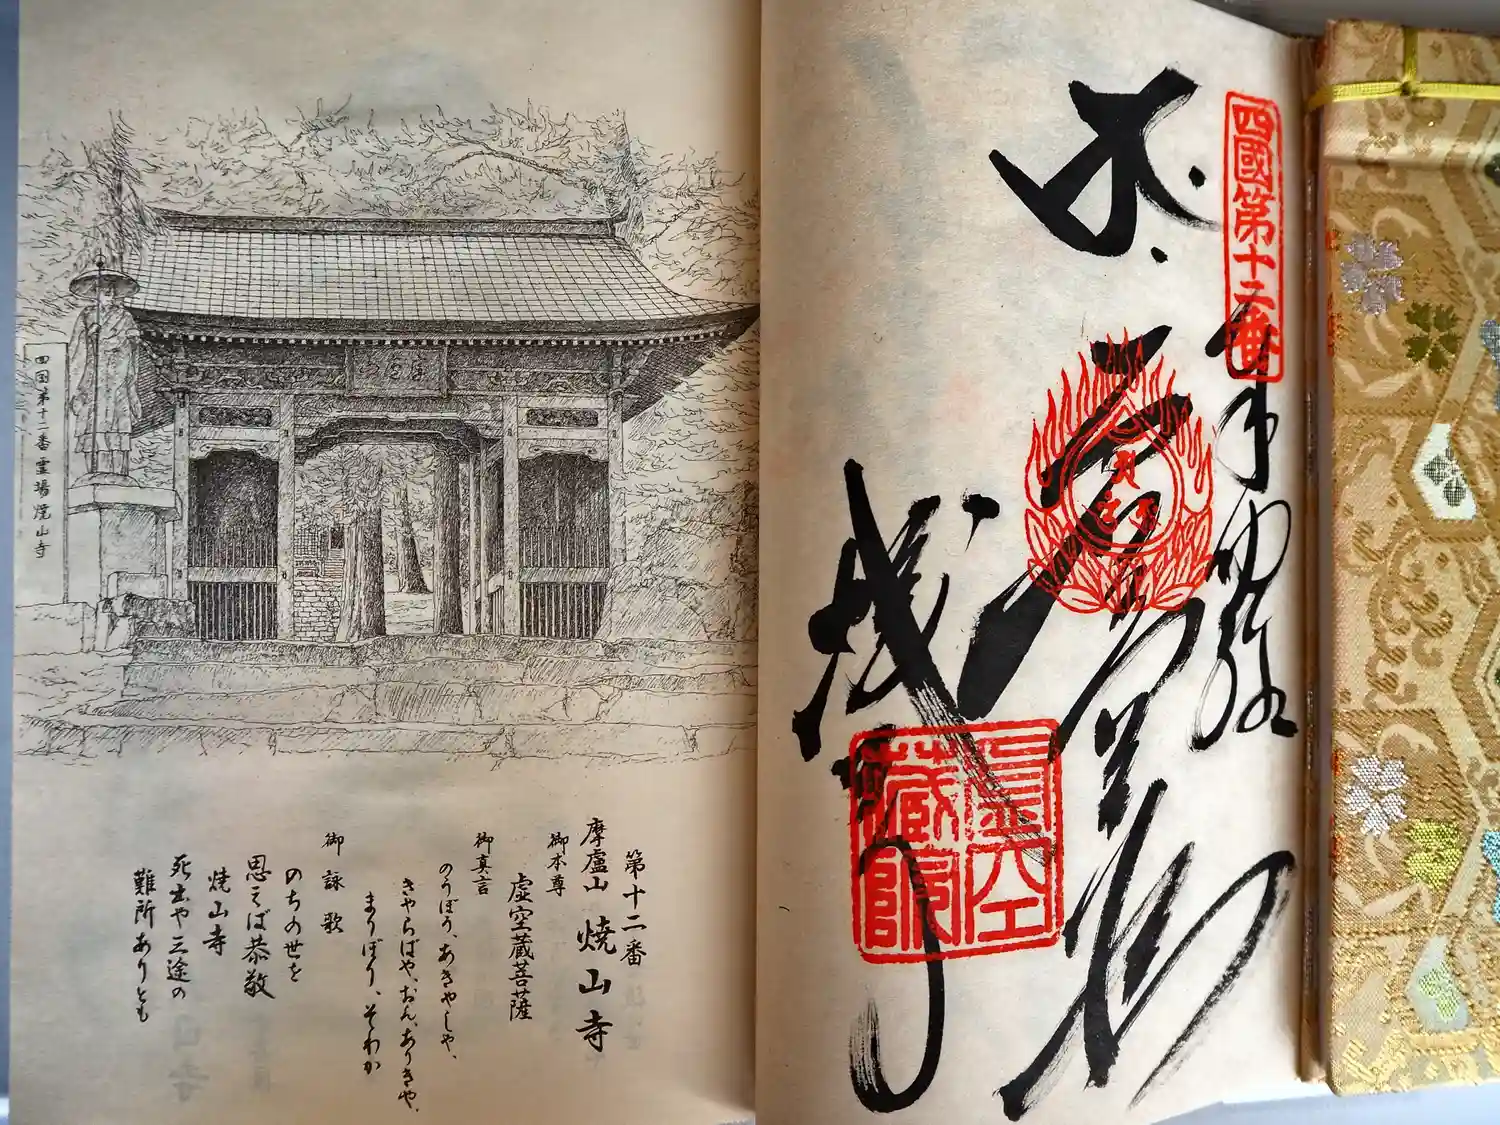 四国第十二番霊場焼山寺
第十二番
摩廬山 焼山寺
御本尊
虚空蔵菩薩
御真言
のうぼう、あきゃしゃ、
きゃらばや、おん、ありきゃ、
まりぼり、そわか
御詠歌
のちの世を
思えば恭敬
焼山寺
死出や三途の
難所ありとも
四國第十二番
奉
虚空
蔵院